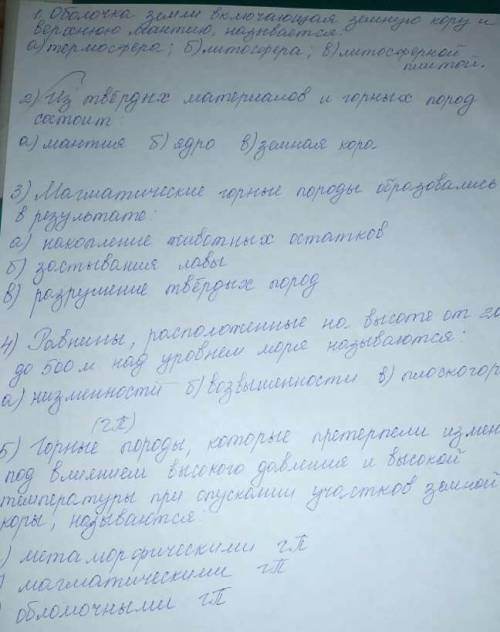 1. Оболочка земли включающая земную кору и
верхнюю мантию, называется:
а) термосфера; б) литосфера; в) литосферной
плитой.
2) Из твёрдых материалов и горных пород
состоит:
а) мантия б) ядро в) земная кора
3) Магматические горные породы образовались
в результате:
а) накопление животных остатков
б) застывания лавы
в) разрушение твёрдых пород
4) Равнины, расположенные на высоте от 20
до 500 м над уровнем моря называются:
а) низменности б) возвышенности в) плоскогор
(гП)
5) Горные породы, которые претерпели измен
под влиянием высокого давления и высокой
температуры при опускании участков земной
коры, называются:
) метаморфическими гП
) магматическими гП
) обломочными гП